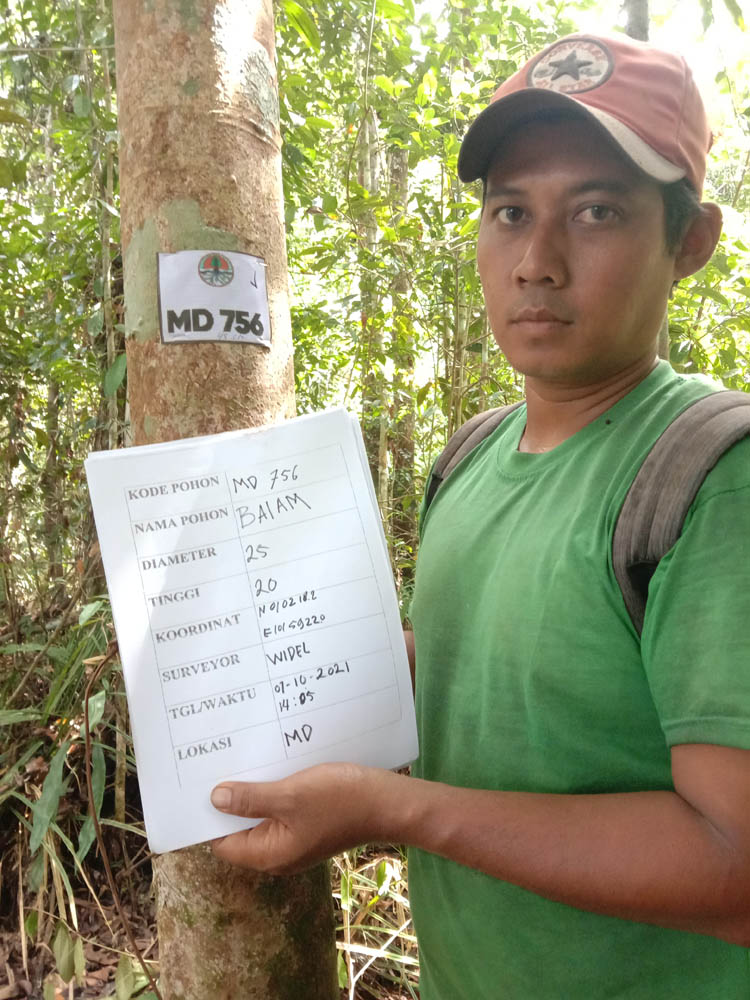 MD 756
KODE POHON MD 756
NAMA POHON BALAM
DIAMETER 25
TINGGI 20
KOORDINAT N 0102182
E10159220
SURVEYOR WIDEL
TGL/WAKTU 07-10-2021
14:05
LOKASI MD